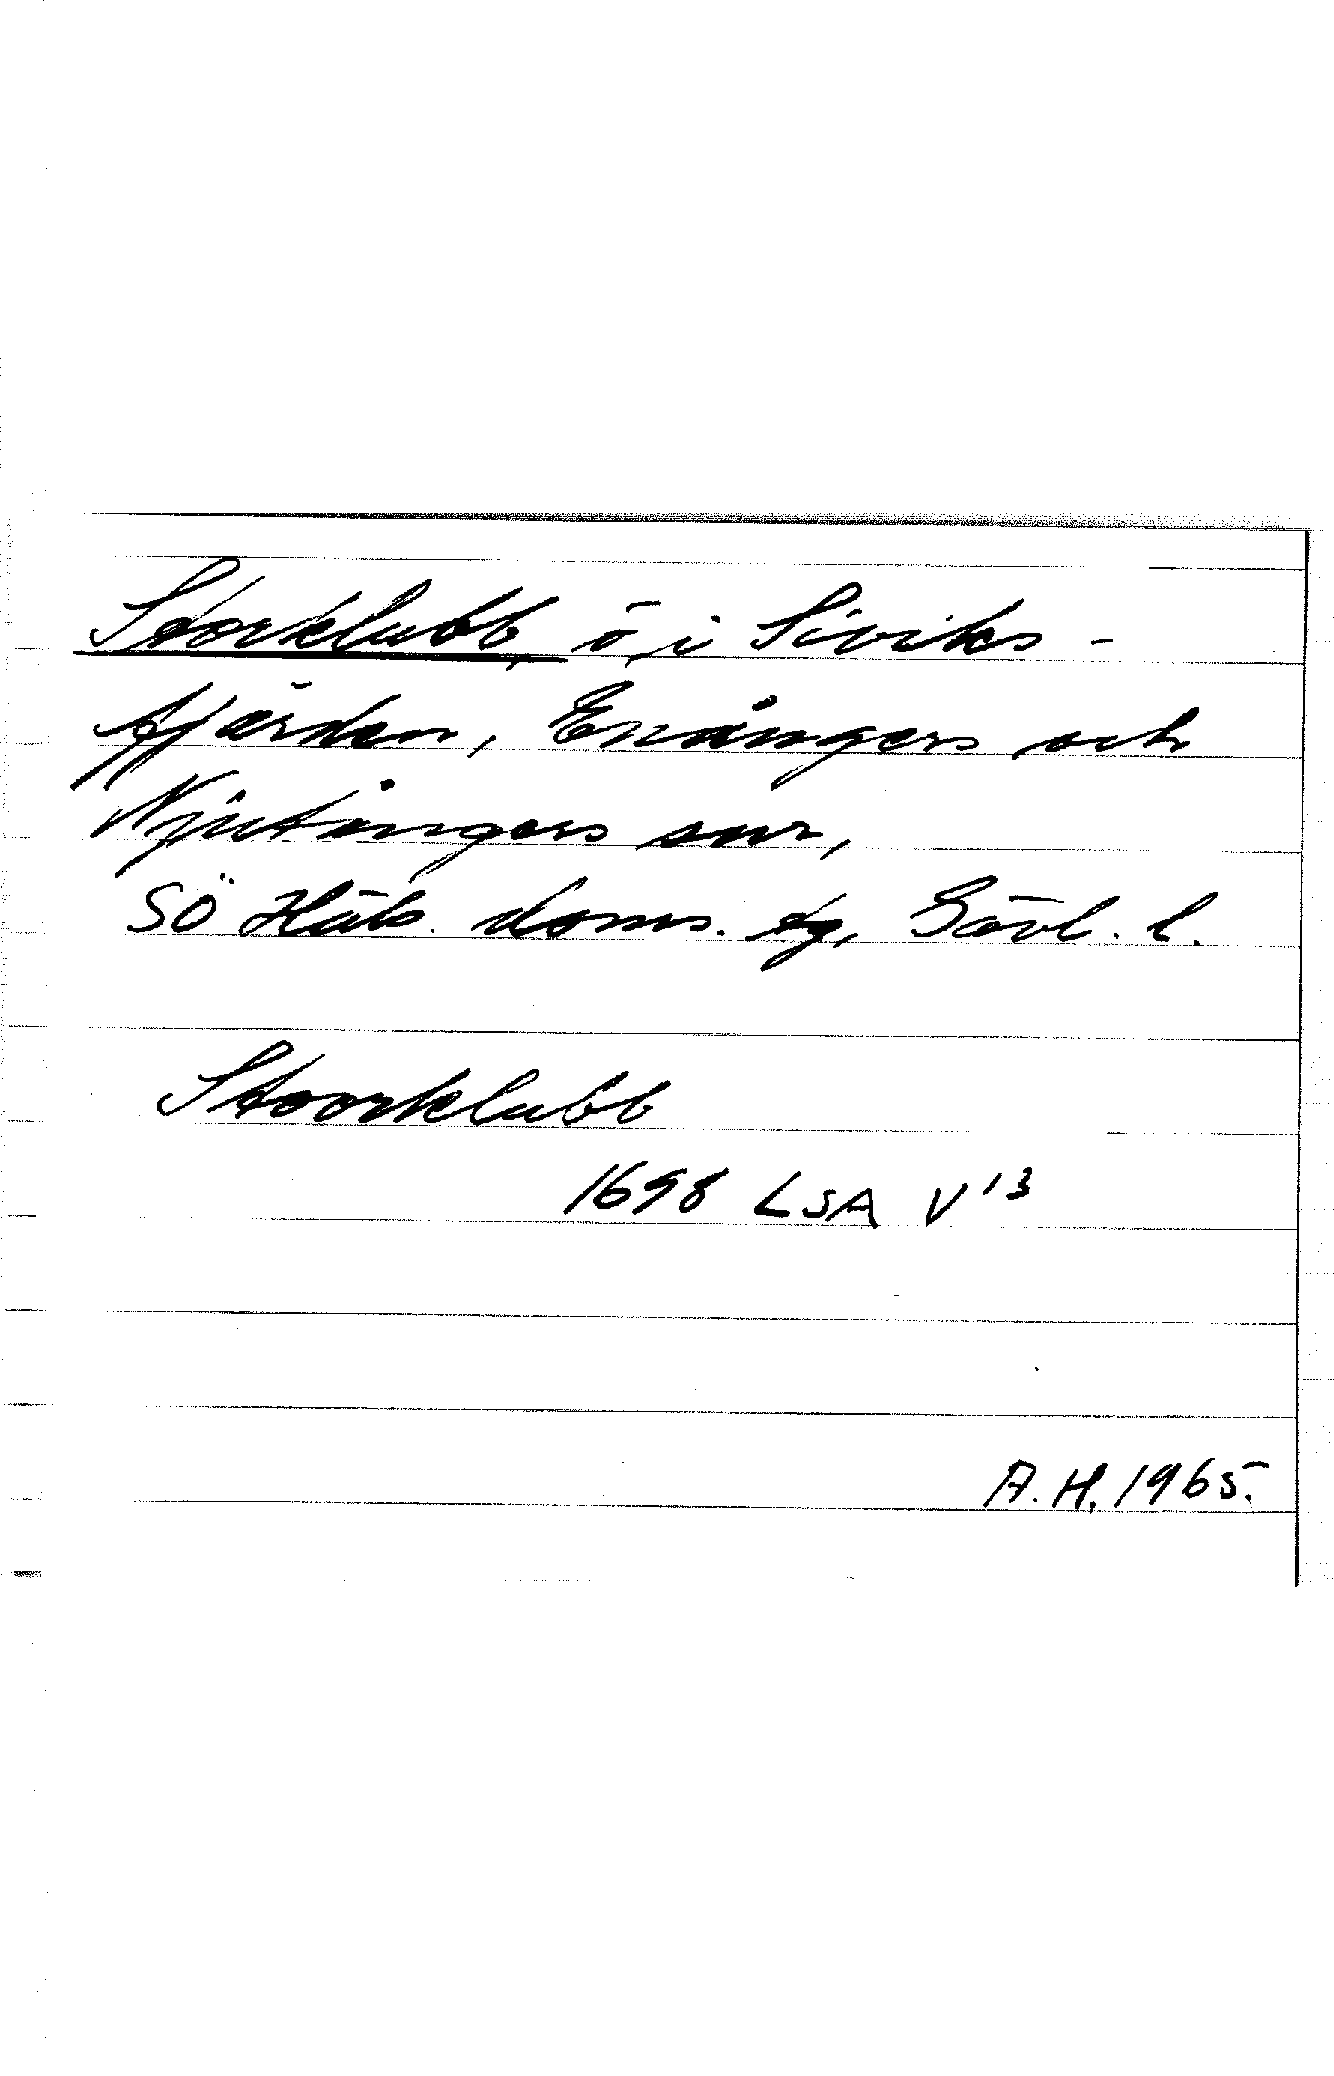 Storklubb, ö, i Siviks-
fjärden, Enångers och
Njutångers snr,
SÖ Häls. doms. tg, Gävl. l.
Stoorklubb
1698 LSA V 13
A.H. 1965.